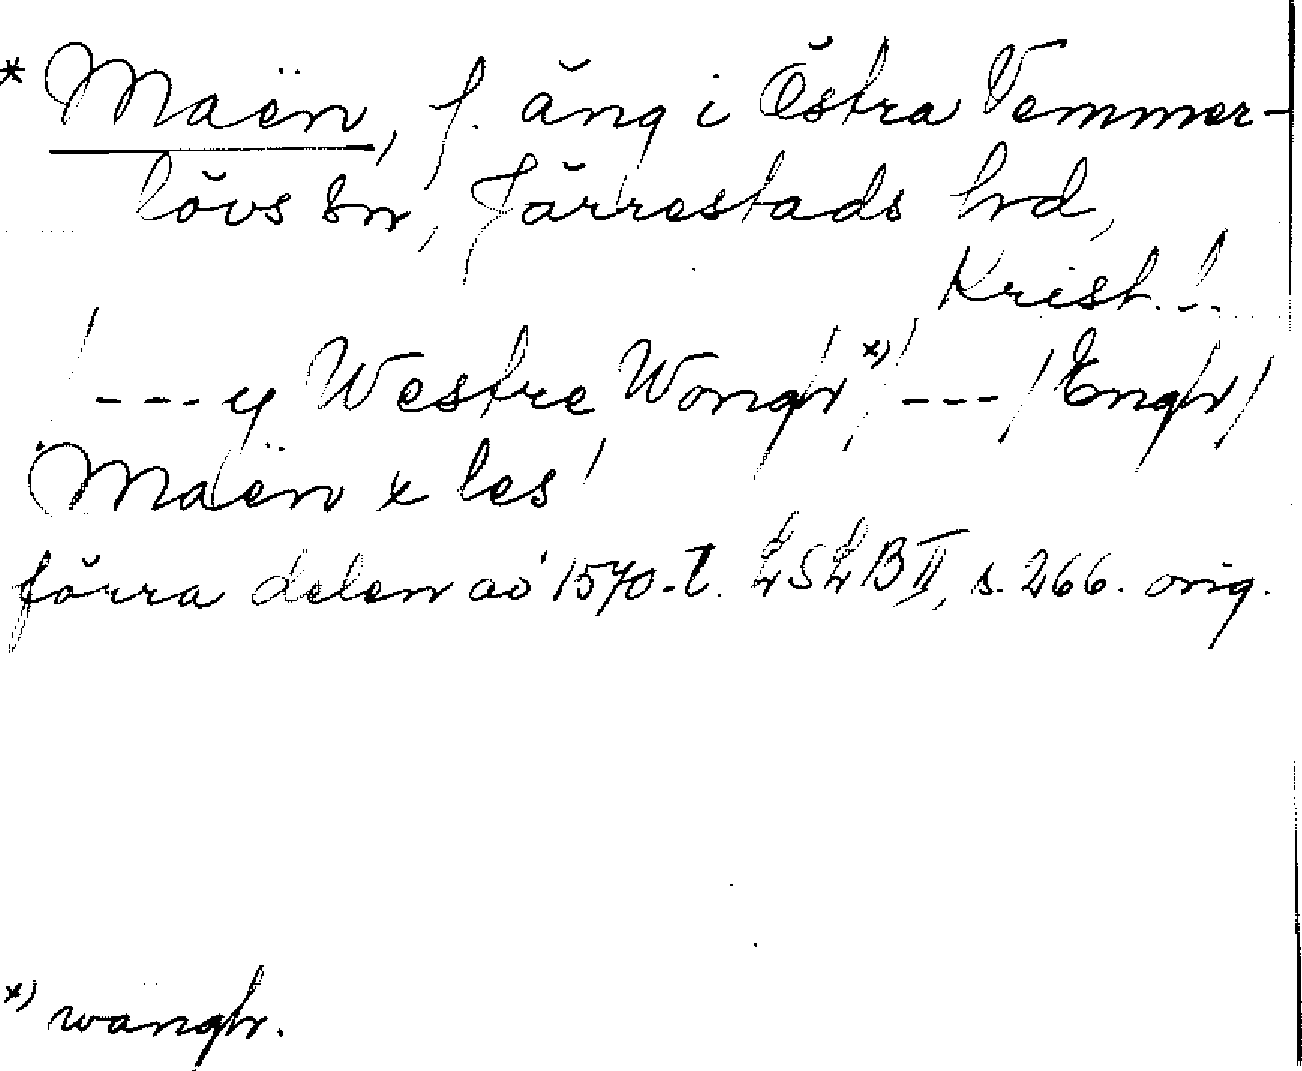 * Maën, f. äng i Östra Vemmer-
lövs sn, Järrestads hd,
Krist. l.
/ --- y Westre Wongh x) / --- / Engh /
Maën x les /
förra delen av 1570-t. LSLB II, s. 266. orig.
x) wangh.